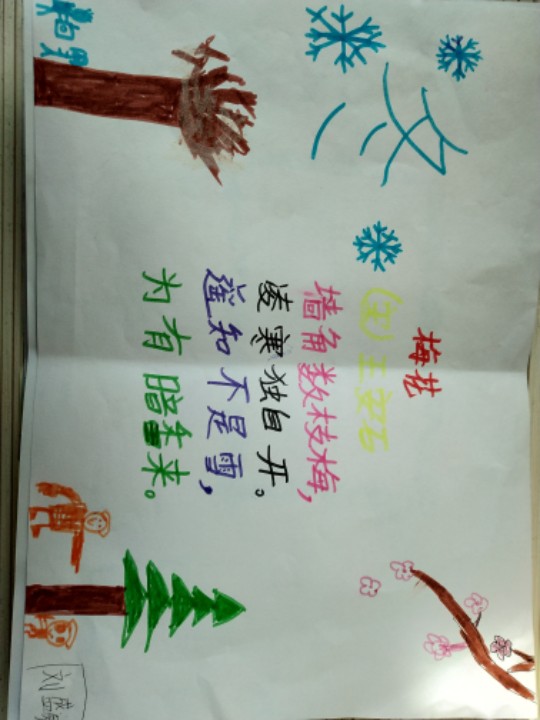 冬
梅花
(宋)王安石
墙角数枝梅,
凌寒独自开。
遥知不是雪,
为有暗香来。
刘